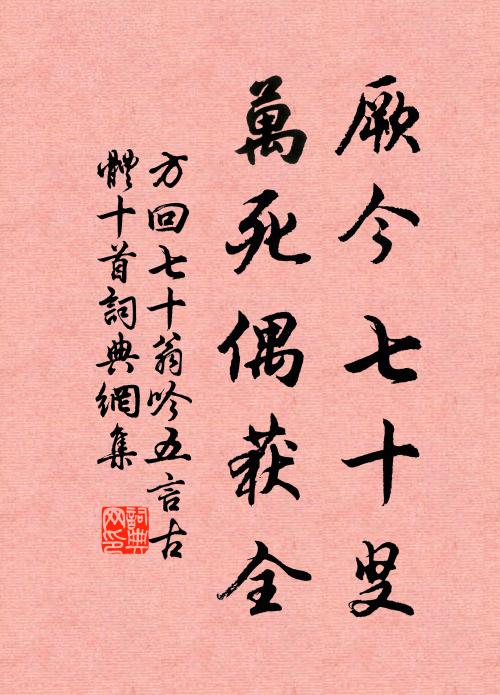 厥今七十叟
萬死偶获全
方回七十翁吟五言古
體十首詞典網集
詞典网印